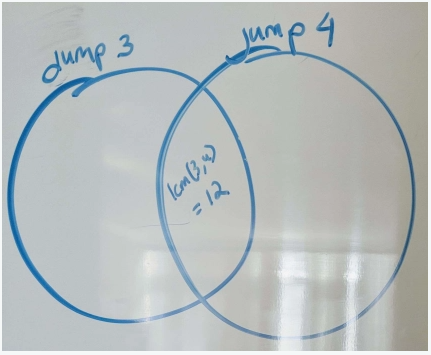 Jump 3
Jump 4
lcm(3,4)
= 12